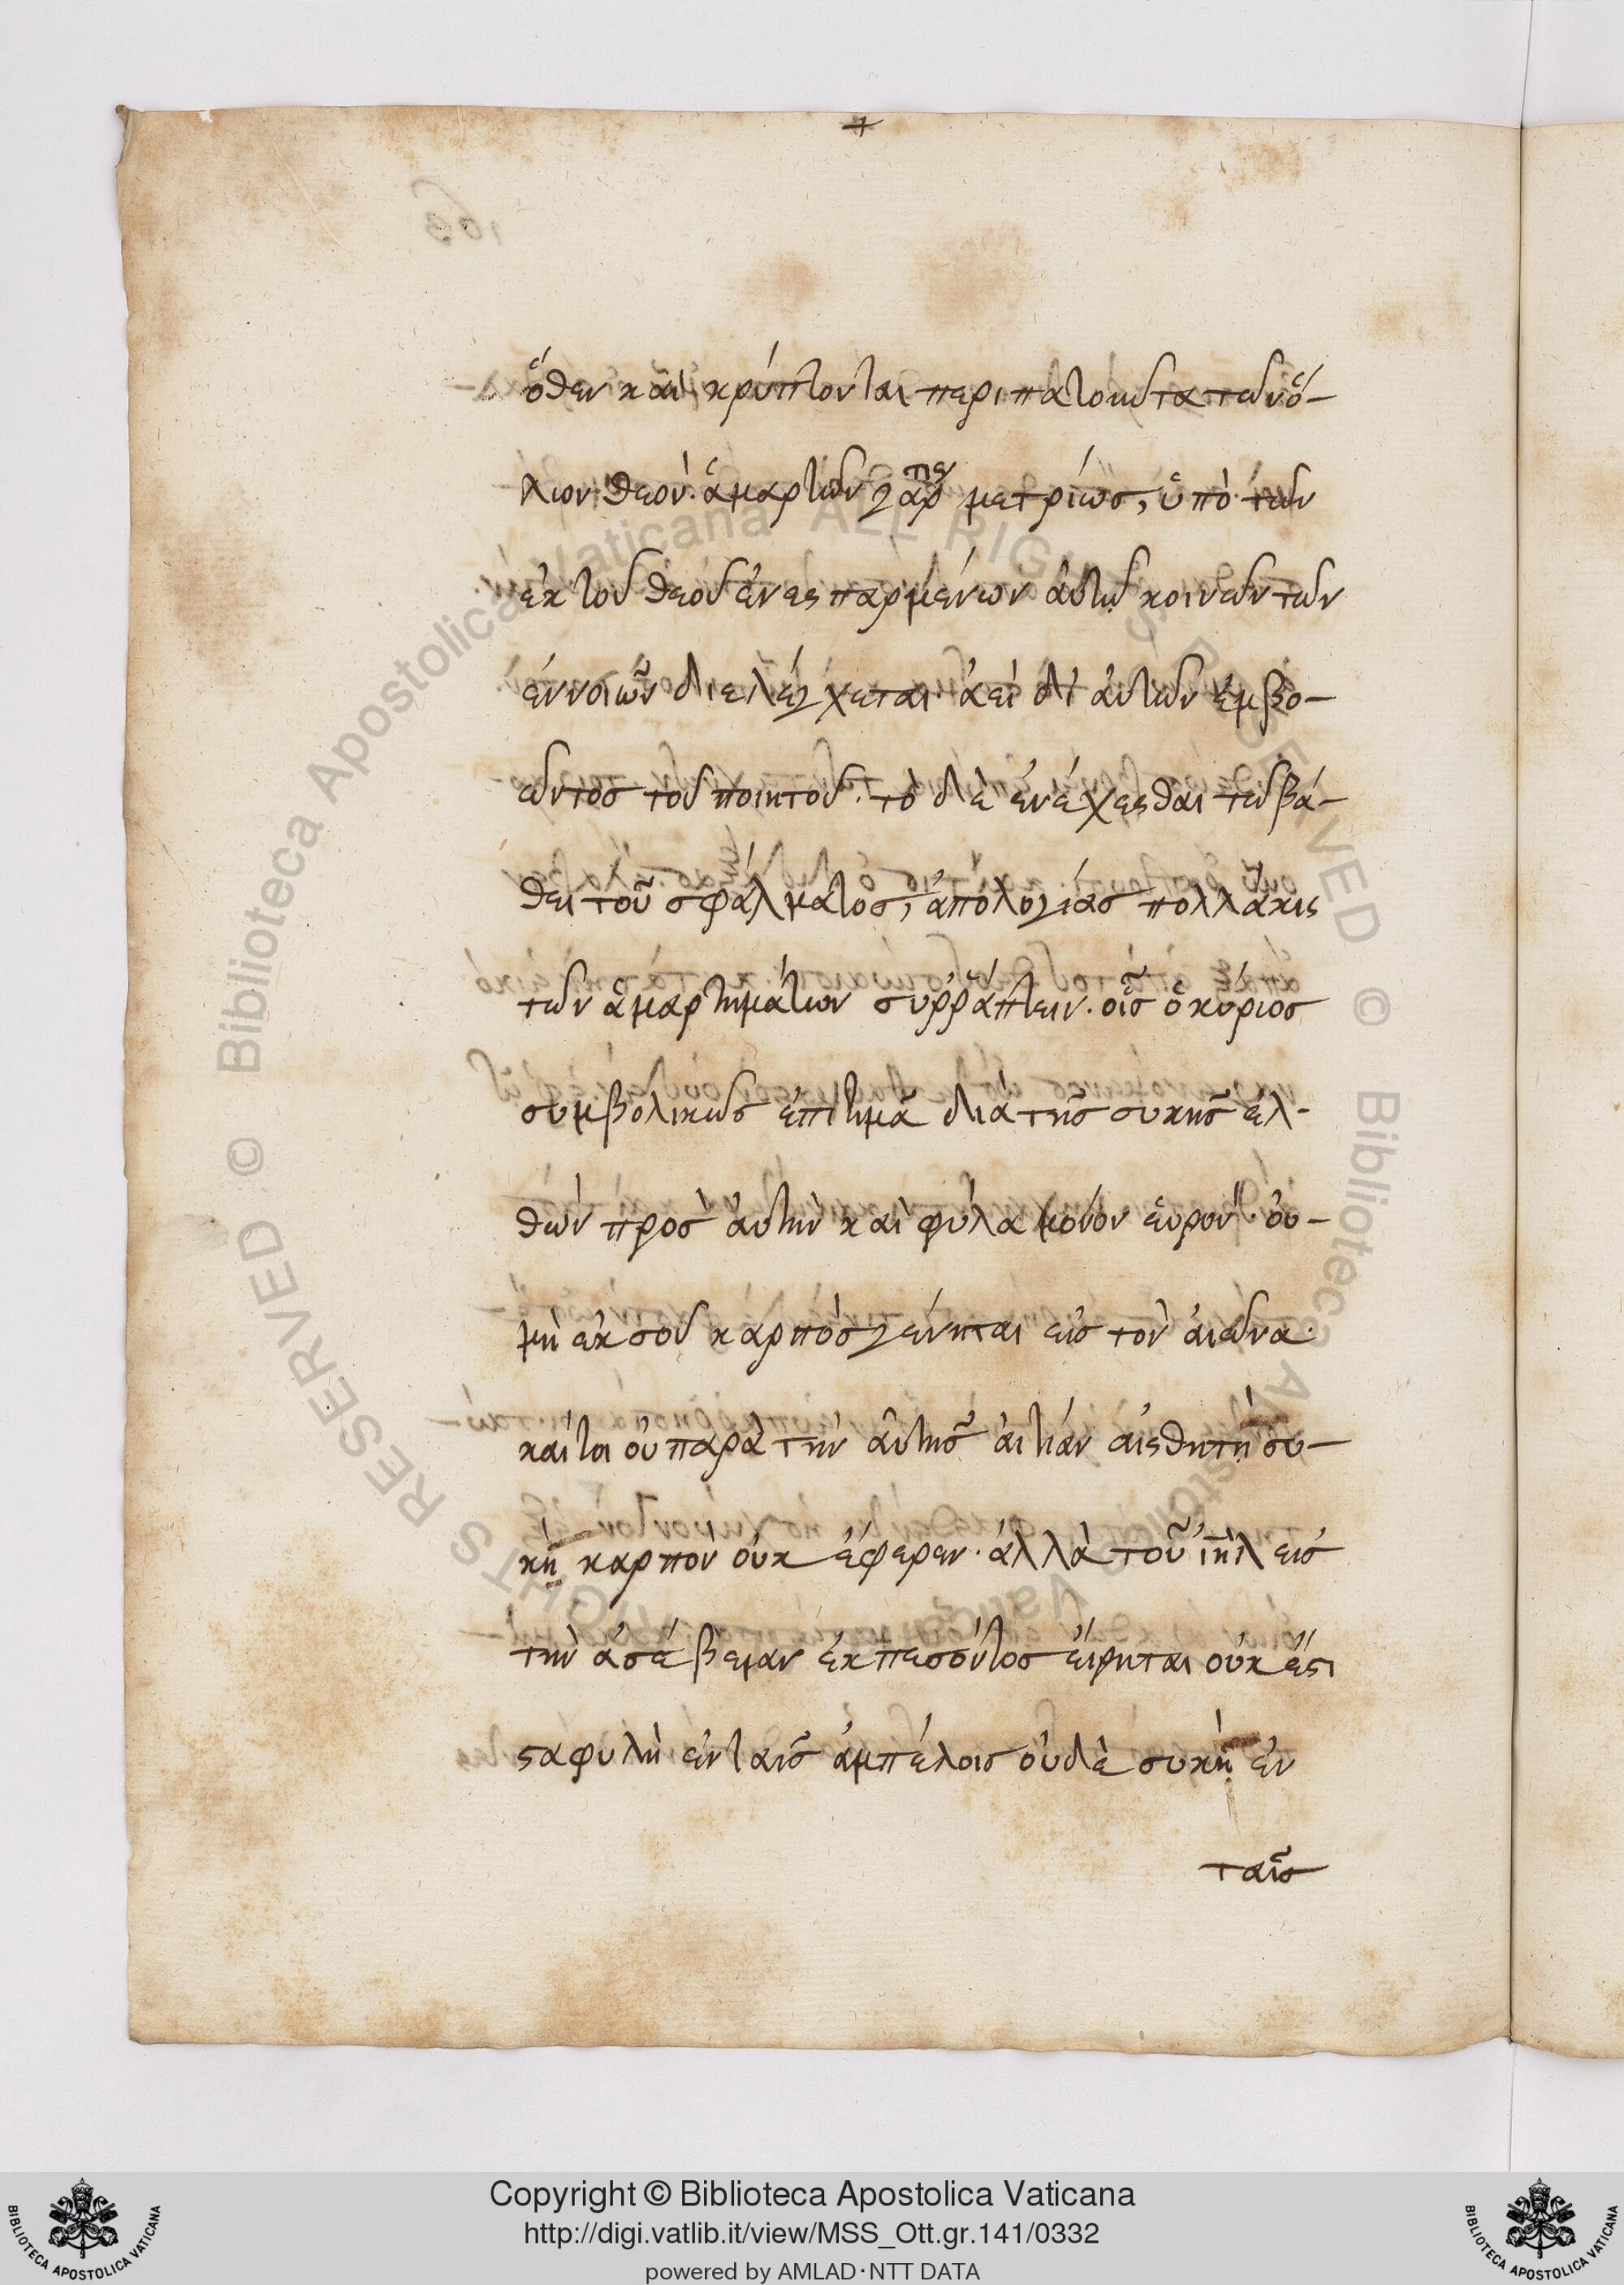 +
ὅθεν καὶ κρύπτονται περιπατοῦντα τῶν ὅ-
λων θεόν. ἁμαρτῶν γάρ τις μετρίως, ὑπὸ τῶν
ἐκ τοῦ θεοῦ ἐνεσπαρμένων αὐτῷ κοινῶν τῶν
ἐννοιῶν διελέγχεται· ἀεὶ δι' αὐτῶν ἐμβο-
ῶντος τοῦ ποιητοῦ. τὸ δὲ ἐνέχεσθαι τῶ βά-
θει τοῦ σφάλματος, ἀπολογίας πολλάκις
τῶν ἁμαρτημάτων συρράπτειν. οἷς ὁ κύριος
συμβολικῶς ἐπιτιμᾶ διὰ τῆς συκῆς ἐλ-
θὼν πρὸς αὐτὴν καὶ φύλα μόνον εὑρὼν· οὐ-
μὴ ἐκ σοῦ καρπὸς γένηται εἰς τὸν αἰῶνα.
καίτοι οὐ παρὰ τὴν αὐτῆς αἰτίαν αἰσθητὴ συ-
κῆ καρπὸν οὐκ ἔφερεν. ἀλλὰ τοῦ ἰηλ εἰς
τὴν ἀσέβειαν ἐκπεσόντος εἴρηται οὐκ ἔστι
σταφυλὴ ἐν ταῖς ἀμπέλοις οὐδὲ συκῆ ἐν
ταῖς
Copyright © Biblioteca Apostolica Vaticana
http://digi.vatlib.it/view/MSS_Ott.gr.141/0332
powered by AMLAD·NTT DATA
BIBLIOTECA APOSTOLICA VATICANA
BIBLIOTECA APOSTOLICA VATICANA
© Biblioteca Apostolica Vaticana ALL RIGHTS RESERVED © Biblioteca Apostolica Vaticana ALL RIGHTS RESERVED